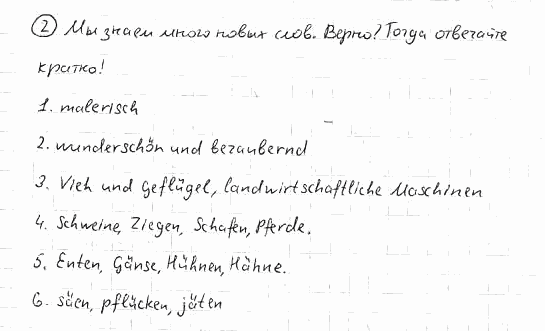 2 Мы знаем много новых слов. Верно? Тогда отвечайте
кратко!
1. malerisch
2. wunderschön und bezaubernd
3. Vieh und Geflügel, landwirtschaftliche Maschinen
4. Schweine, Ziegen, Schafen, Pferde.
5. Enten, Gänse, Hühnen, Hähne.
6. säen, pflücken, jäten